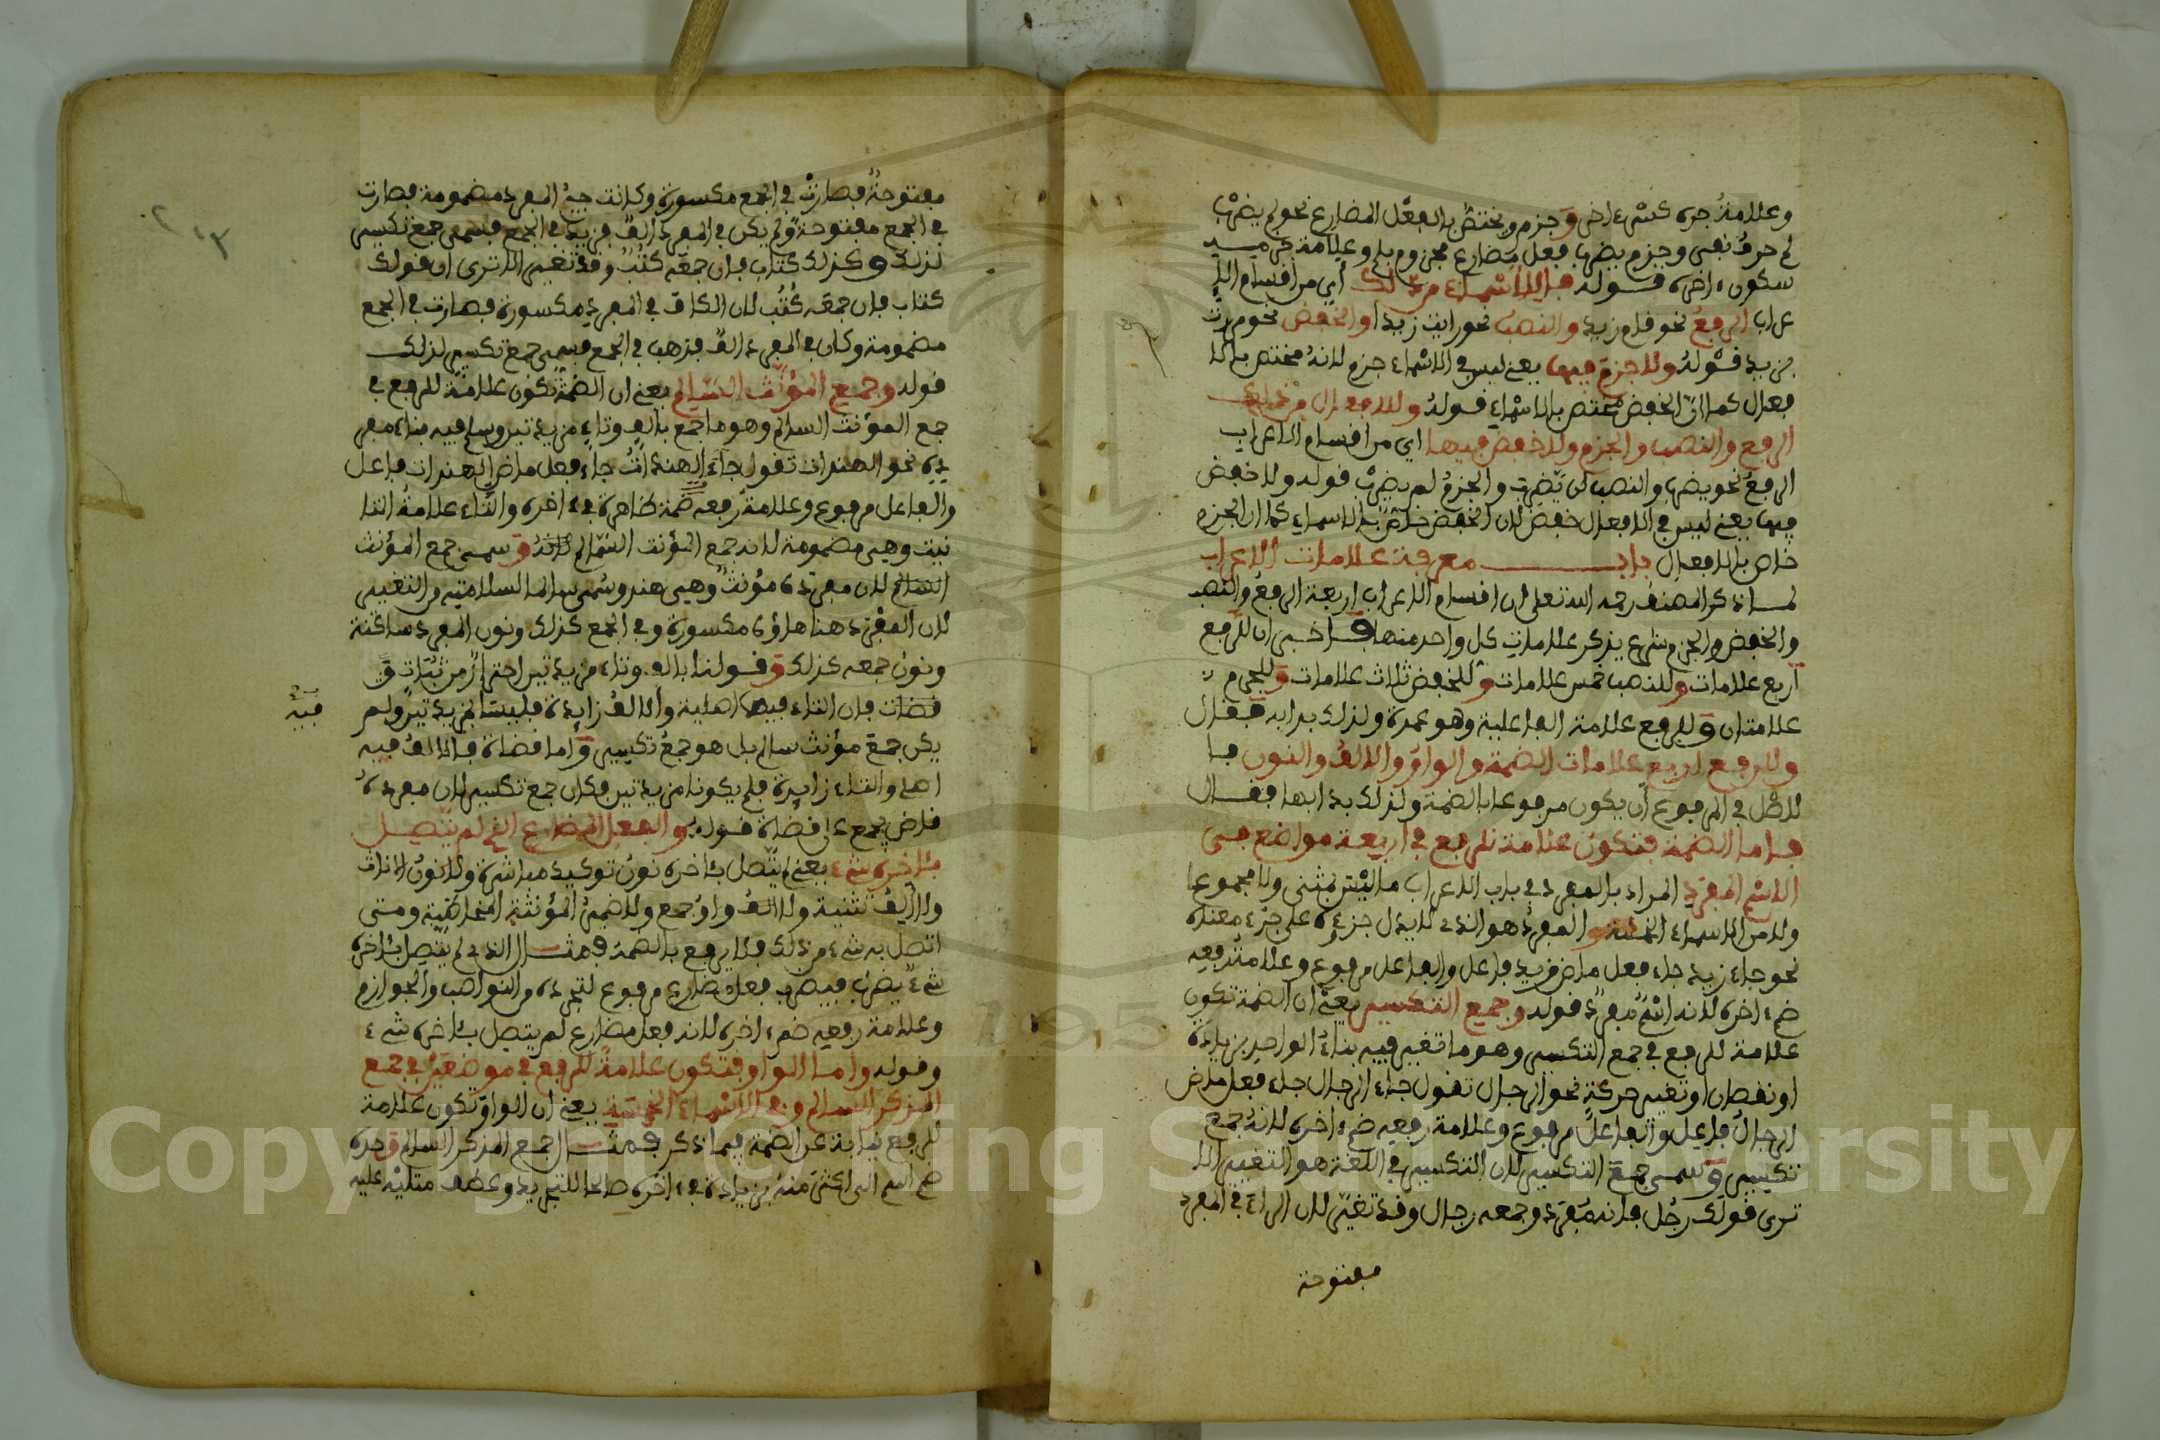 وعلامة جره كسر ءاخره وجزم ويختص بالفعل المضارع نحو لم يضرب
لم حرف نفي وجزم يضرب فعل مضارع مجزوم بلم وعلامة جزمه
سكون ءاخره قوله فللاسماء من ذلك أي من اقسام الا
عراب الرفع نحو قام زيد والنصب نحو رايت زيدا والخفض نحو مررت
بزيد قوله ولا جزم فيها يعني ليس في الاسماء جزم لانه مختص بالا
فعال كما ان الخفض مختص بالاسماء قوله وللافعال من ذلك
الرفع والنصب والجزم ولا خفض فيها اي من اقسام الاعراب
الرفع نحو يضرب والنصب لن يضرب والجزم لم يضرب قوله ولا خفض
فيها يعني ليس في الافعال خفض لان الخفض خاص بالاسماء كما ان الجزم
خاص بالافعال باب معرفة علامات الاعراب
لما ذكر المصنف رحمه الله تعلى ان اقسام الاعراب اربعة الرفع والنصب
والخفض والجزم شرع يذكر علامات كل واحد منها فاخبر ان للرفع
اربع علامات وللنصب خمس علامات وللخفض ثلاث علامات وللجزم
علامتان وللرفع علامة الفاعلية وهو عمدة ولذلك بدا به فقال
وللرفع اربع علامات الضمة والواو والالف والنون فا
لاصل في المرفوع أن يكون مرفوعا بالضمة ولذلك بدا بها فقال
فاما الضمة فتكون علامة للرفع في اربعة مواضع في
الاسم المفرد المراد بالمفرد في باب الاعراب ما ليس مثنى ولا مجموعا
ولا من الاسماء الخمسة والمفرد هو الذي لا يدل جزءه على جزء معناه
نحو جاء زيد جاء فعل ماض زيد فاعل والفاعل مرفوع وعلامة رفعه
ضم ءاخره لانه اسم مفرد قوله وجمع التكسير يعني ان الضمة تكون
علامة للرفع في جمع التكسير وهو ما تغير فيه بناء الواحد بزيادة
او نقصان او تغيير حركة نحو الرجال تقول جاء الرجال جاء فعل ماض
الرجال فاعل والفاعل مرفوع وعلامة رفعه ضم ءاخره لانه جمع
تكسير وسمي جمع التكسير لان التكسير في اللغة هو التغيير الا
ترى قولك رجل فانه مفرد وجمعه رجال وقد تغير لان الراء في المفرد
مفتوحة
مفتوحة فصارت في الجمع مكسورة وكانت جيم المفرد مضمومة فصارت
في الجمع مفتوحة ولم يكن في المفرد الف فزيد في الجمع فسمي جمع تكسير
لذلك وكذلك كتاب فان جمعه كتب وقد تغير الا ترى ان قولك
كتاب فان جمعه كتب لان الكاف في المفرد مكسورة فصارت في الجمع
مضمومة وكان في المفرد الف فذهب في الجمع فسمي جمع تكسير لذلك
قوله وجمع المؤنث السالم يعني ان الضمة تكون علامة للرفع في
جمع المؤنث السالم وهو ما جمع بالف وتاء مزيدتين وسلم فيه بناء مفر
ده نحو الهندات تقول جاءت الهندات جاء فعل ماض الهندات فاعل
والفاعل مرفوع وعلامة رفعه ضمة ظاهرة في ءاخره والتاء علامة التا
نيث وهي مضمومة لانه جمع المؤنث السالم وسمي جمع المؤنث
السالم لان مفرده مؤنث وهي هند وسمي سالما لسلامته من التغيير
لان المفرد هنا هاؤه مكسورة وفي الجمع كذلك ونون المفرد ساكنة
ونون جمعه كذلك وقولنا بالف وتاء مزيدتين احترازا من
قضاة فان التاء فيها اصلية والالف زايدة فليستا بمزيدتين ولم
يكن جمع مؤنث سالم بل هو جمع تكسير وأما قضاة فالالف فيه
اصلي والتاء زايدة فلم يكونا مزيدتين فكان جمع تكسير لان مفرده
قاض يجمع على قضاة قوله والفعل المضارع الذي لم يتصل
بئاخره شيء يعني لم يتصل بئاخره نون توكيد مباشرة ولا نون الاناث
ولا الف تثنية ولا واو جمع ولا ضمير المؤنثة المخاطبة ومتى
اتصل به شيء من ذلك فلا يرفع بالضمة ومثال الذي لم يتصل بئاخره
شيء يضرب فيضرب فعل مضارع مرفوع لتجرده من النواصب والجوازم
وعلامة رفعه ضم ءاخره لانه فعل مضارع لم يتصل بئاخره شيء
وقوله وأما الواو فتكون علامة للرفع في موضعين في جمع
المذكر السالم وفي الاسماء الخمسة يعني ان الواو تكون علامة
للرفع نيابة عن الضمة فيما ذكر ومثال الجمع المذكر السالم وحده
اسم اكثر منه بزيادة في ءاخره صالحا للتجريد وعطف مثليه عليه